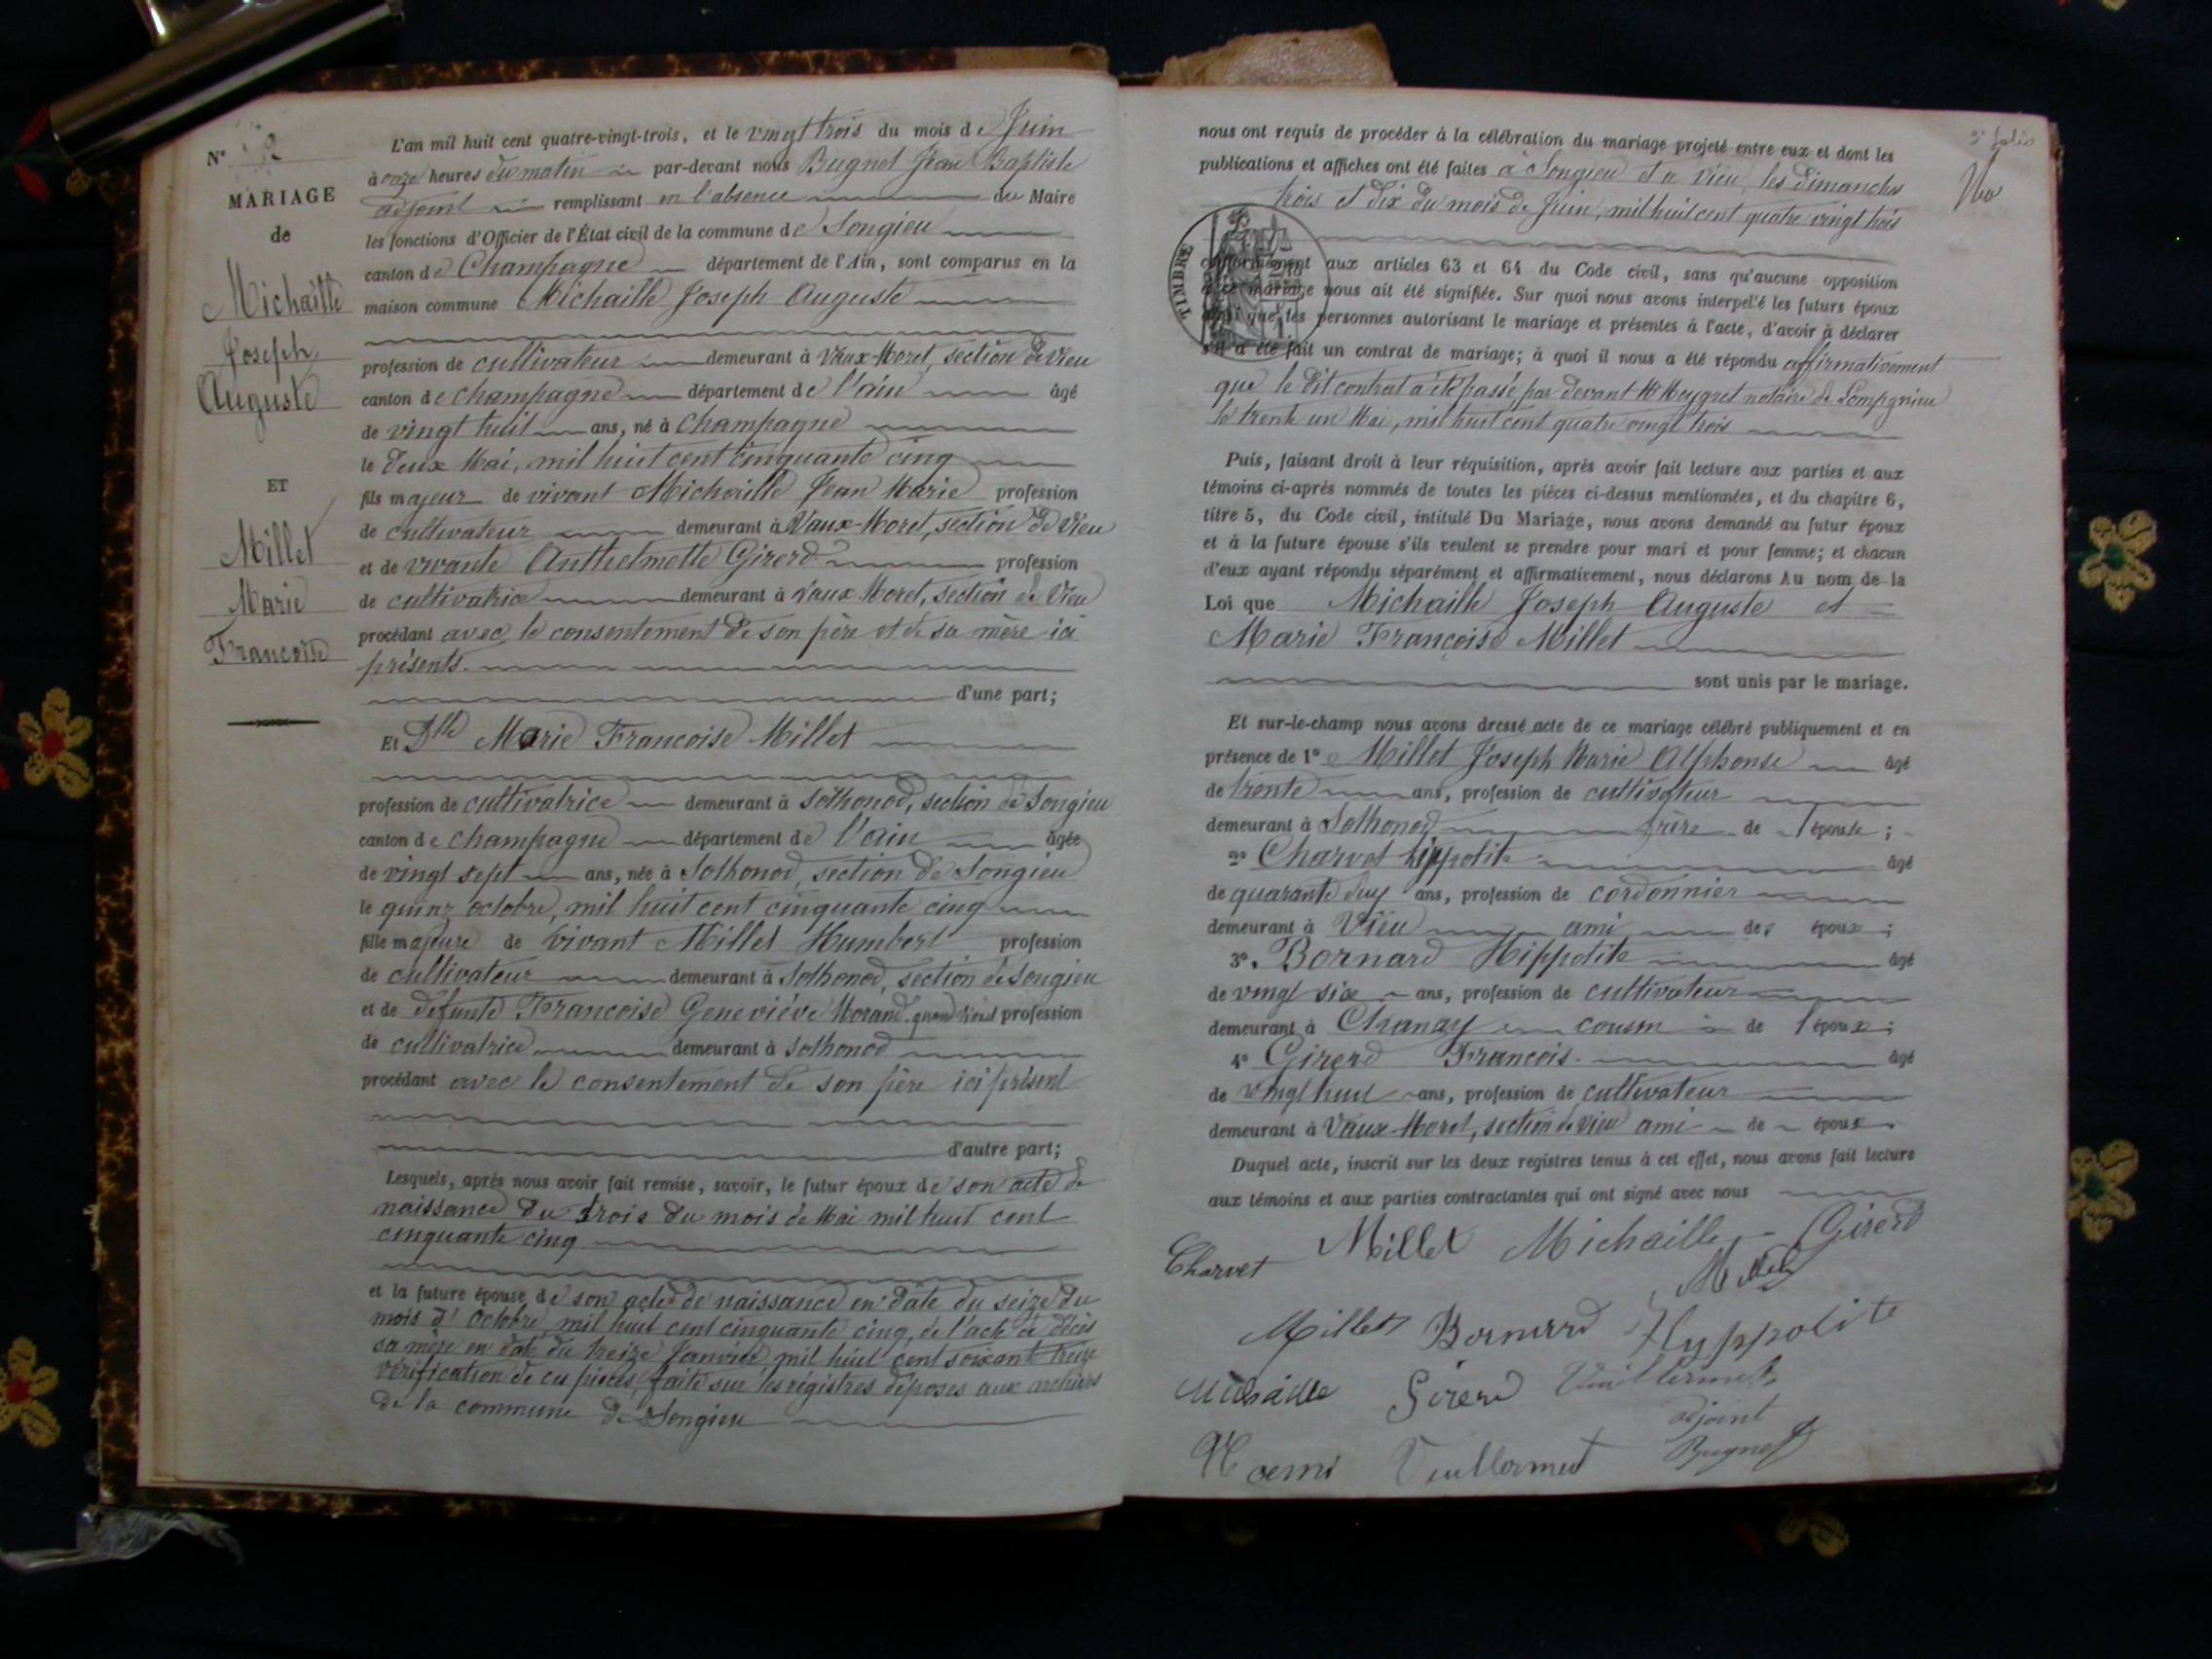 N° 2
MARIAGE
de
Michaille
Joseph
Auguste
ET
Millet
Marie
Francoise
L'an mil huit cent quatre-vingt-trois, et le vingt trois du mois de Juin
à onze heures du matin par-devant nous Bugnet Jean Baptiste
adjoint remplissant en l'absence du Maire
les fonctions d'Officier de l'État civil de la commune de Songieu
canton de Champagne département de l'Ain, sont comparus en la
maison commune Michaille Joseph Auguste
profession de cultivateur demeurant à Vaux-Moret, section de Vieu
canton de champagne département de l'ain âgé
de vingt huit ans, né à Champagne
le deux Mai, mil huit cent cinquante cinq
fils majeur de vivant Michaille Jean Marie profession
de cultivateur demeurant à Vaux-Moret, section de Vieu
et de vivante Anthelmette Girerd profession
de cultivatrice demeurant à Vaux Moret, section de Vieu
procédant avec le consentement de son père et de sa mère ici
présents.
d'une part;
Et Dlle Marie Francoise Millet
profession de cultivatrice demeurant à Sothonod, section de Songieu
canton de champagne département de l'ain âgée
de vingt sept ans, née à Sothonod, section de Songieu
le quinz octobre, mil huit cent cinquante cinq
fille majeure de vivant Millet Humbert profession
de cultivateur demeurant à Sothonod, section de Songieu
et de défunte Francoise Geneviéve Morand quand vivait profession
de cultivatrice demeurant à Sothonod
procédant avec le consentement de son père ici présent
d'autre part;
Lesquels, après nous avoir fait remise, savoir, le futur époux de son acte de
naissance du trois du mois de Mai mil huit cent
cinquante cinq
et la future épouse de son acte de naissance en date du seize du
mois d'Octobre mil huit cent cinquante cinq, de l'acte de décès
sa mère en date du treize Janvier mil huit cent soixant treize
vérification de ces pièces, faite sur les régistres déposés aux archives
de la commune de Songieu
3e folio
nous ont requis de procéder à la célébration du mariage projeté entre eux et dont les
publications et affiches ont été faites à Songieu et a Vieu, les dimanches
trois et dix du mois de Juin, mil huit cent quatre vingt trois
TIMBRE
conformément aux articles 63 et 64 du Code civil, sans qu'aucune opposition
à ce mariage nous ait été signifiée. Sur quoi nous avons interpelé les futurs époux
ainsi que les personnes autorisant le mariage et présentes à l'acte, d'avoir à déclarer
s'il a été fait un contrat de mariage; à quoi il nous a été répondu affirmativement
que le dit contrat a été passé par devant Me Meygret notaire de Lompgnieu
le trente un Mai, mil huit cent quatre vingt trois
Puis, faisant droit à leur réquisition, après avoir fait lecture aux parties et aux
témoins ci-après nommés de toutes les pièces ci-dessus mentionnées, et du chapitre 6,
titre 5, du Code civil, intitulé Du Mariage, nous avons demandé au futur époux
et à la future épouse s'ils veulent se prendre pour mari et pour femme; et chacun
d'eux ayant répondu séparément et affirmativement, nous déclarons Au nom de la
Loi que Michaille Joseph Auguste et
Marie Françoise Millet
sont unis par le mariage.
Et sur-le-champ nous avons dressé acte de ce mariage célébré publiquement et en
présence de 1° Millet Joseph Marie Alphonse âgé
de trente ans, profession de cultivateur
demeurant à Sothonod frère de l'épouse;
2° Charvet Hippolite âgé
de quarante deux ans, profession de cordonnier
demeurant à Vieu ami des époux;
3° Bornard Hippolite âgé
de vingt six ans, profession de cultivateur
demeurant à Chanay cousin de l'époux;
4° Girerd Francois. âgé
de vingt huit ans, profession de cultivateur
demeurant à Vaux-Moret, section de Vieu ami de époux.
Duquel acte, inscrit sur les deux registres tenus à cet effet, nous avons fait lecture
aux témoins et aux parties contractantes qui ont signé avec nous
Charvet Millet Michaille Girerd
Millet Bornard Hyppolite
Michaille Girerd Vuillermet
Noemi Vuillermet
adjoint
Bugnet